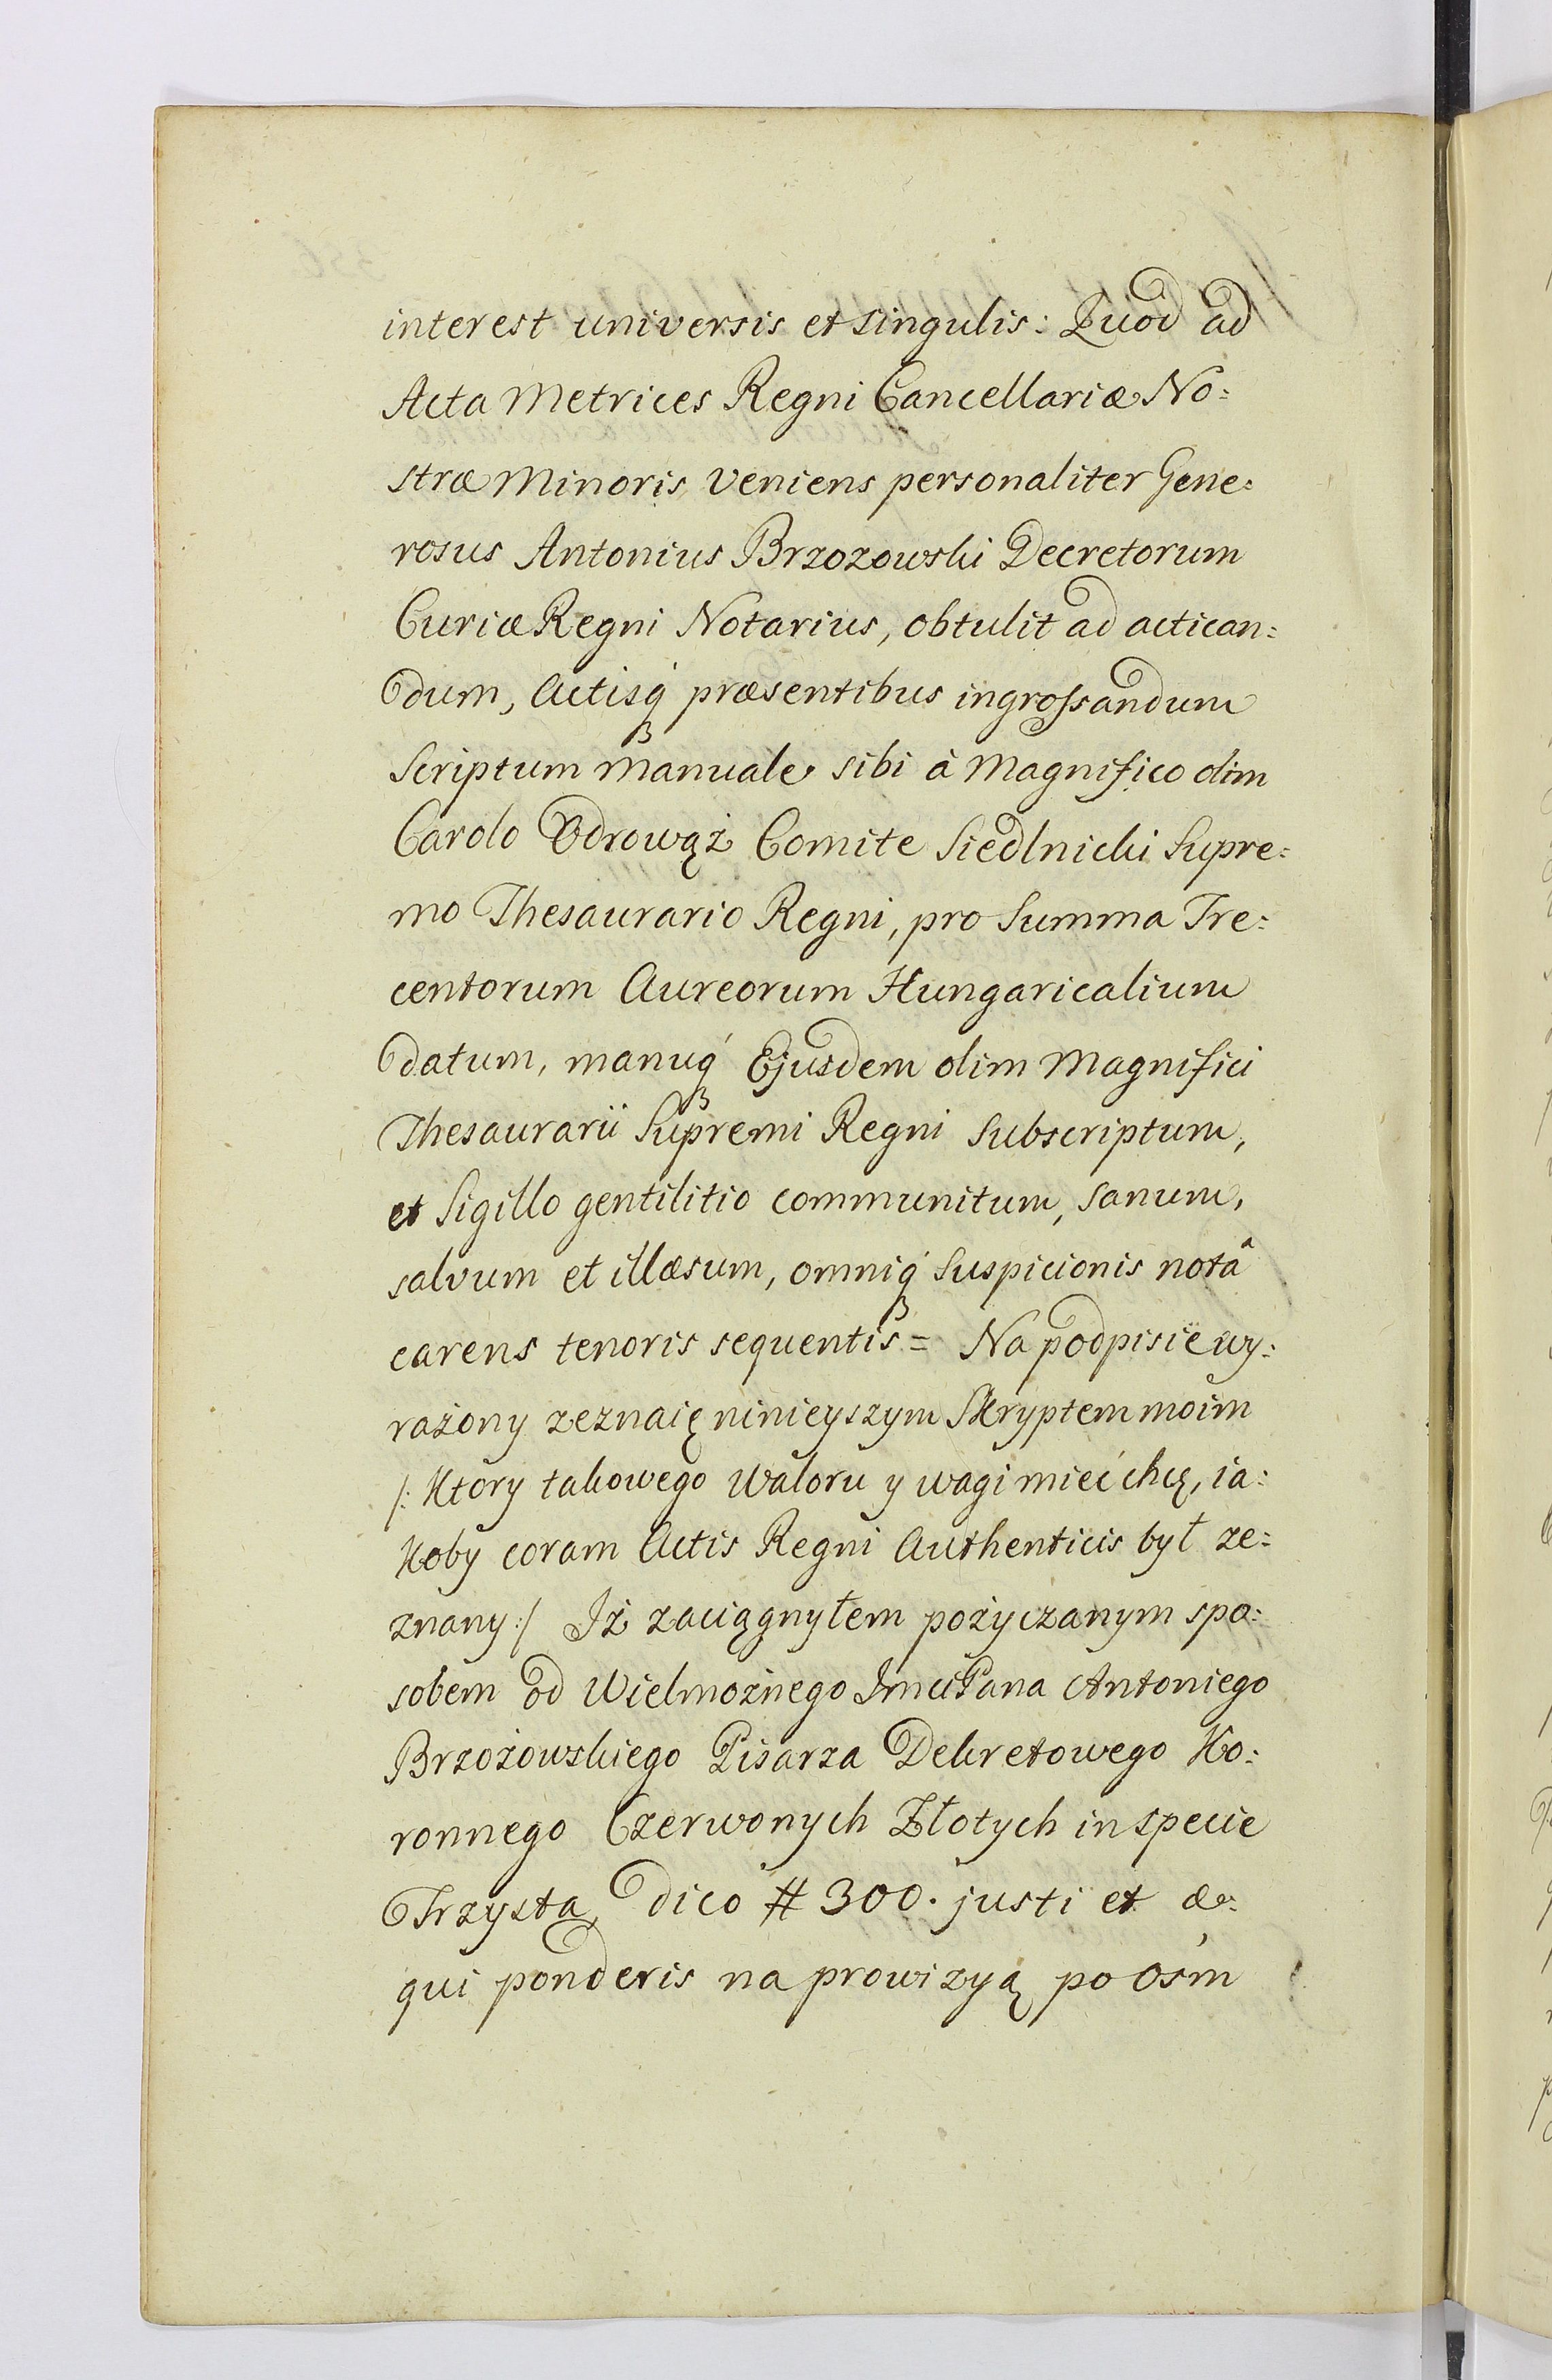 interest universis et singulis: Quod ad
Acta Metrices Regni Cancellariæ No:
stræ Minoris veniens personaliter Gene:
rosus Antonius Brzozowski Decretorum
Curiæ Regni Notarius, obtulit ad actican:
dum, Actisq́ præsentibus ingrossandum
Scriptum Manuale sibi à Magnifico olim
Carolo Odrowąż Comite Siedlnicki Supre:
mo Thesaurario Regni, pro Summa Tre:
centorum Aureorum Hungaricalium
datum, manuq́ Ejusdem olim Magnifici
Thesaurarii Supremi Regni Subscriptum,
et Sigillo gentilitio communitum, sanum,
salvum et illæsum, omniq́ Suspicionis notâ
carens tenoris sequentis = Na podpisie wy:
rażony zeznaię ninieyszym Skryptem moim
/: Który takowego Waloru y wagi mieć chcę, ia:
koby coram Actis Regni Authenticis był ze:
znany :/ Iż zaciągnyłem pożyczanym spo:
sobem od Wielmożnego Jmci Pana Antoniego
Brzozowskiego Pisarza Dekretowego Ko:
ronnego Czerwonych Złotych in specie
Trzysta, dico # 300. justi et æ:
qui ponderis na prowizyą po Ośm